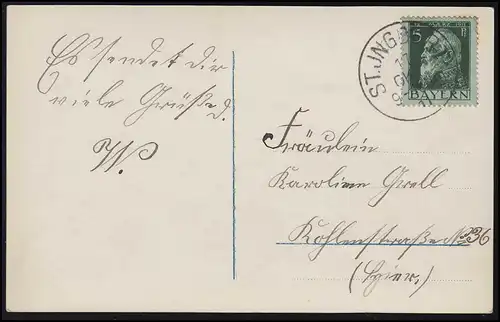 Es sendet dir
viele Grüße d.
W.
ST. INGB
5
BAYERN
Fräulein
Karoline Grell
Kohlenstraße No 36
(hier.)